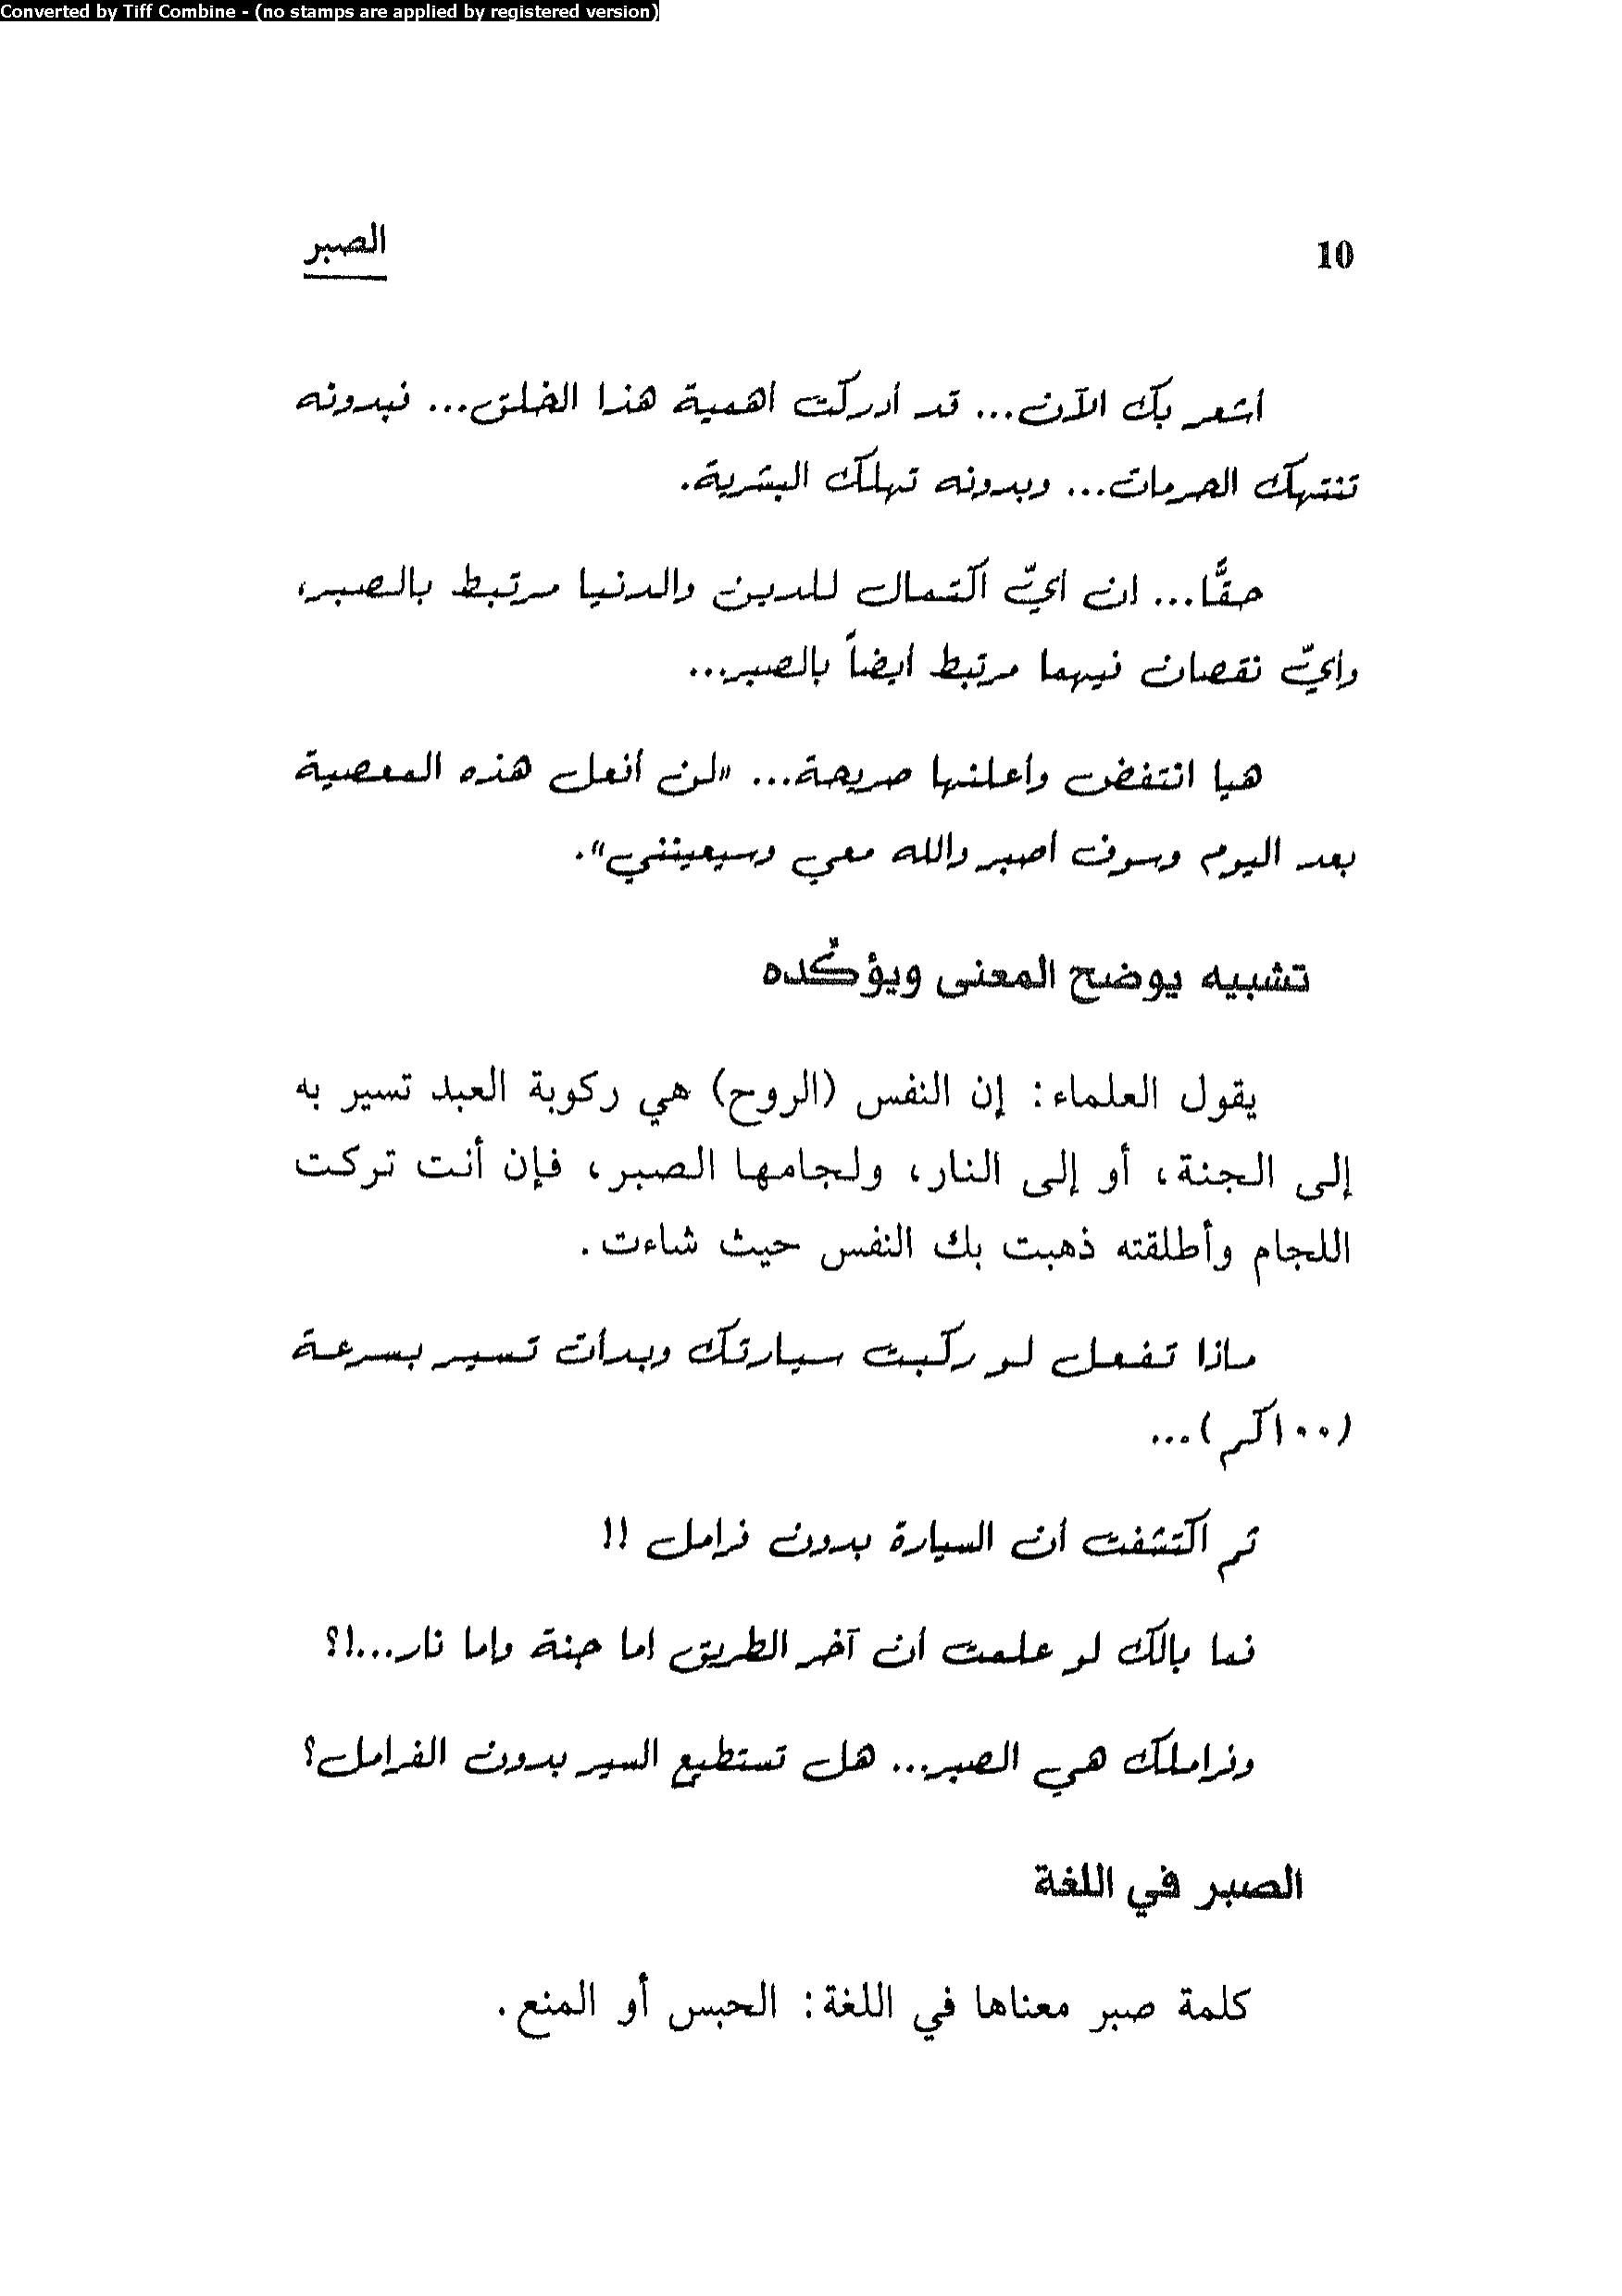 Converted by Tiff Combine - (no stamps are applied by registered version)
10
الصبر
أشعر بك الآن... قد أدركت أهمية هذا الخلق... فبدونه
تنتهك الحرمات... وبدونه تهلك البشرية.
حقًّا... إن أيّ اكتمال للدين والدنيا مرتبط بالصبر،
وأيّ نقصان فيهما مرتبط أيضاً بالصبر...
هيا انتفض وأعلنها صريحة... «لن أفعل هذه المعصية
بعد اليوم وسوف أصبر والله معي وسيعينني».
تشبيه يوضح المعنى ويؤكّده
يقول العلماء: إن النفس (الروح) هي ركوبة العبد تسير به
إلى الجنة، أو إلى النار، ولجامها الصبر، فإن أنت تركت
اللجام وأطلقته ذهبت بك النفس حيث شاءت.
ماذا تفعل لو ركبت سيارتك وبدأت تسير بسرعة
(١٠٠كم)...
ثم اكتشفت أن السيارة بدون فرامل !!
فما بالك لو علمت أن آخر الطريق إما جنة وإما نار...!؟
وفراملك هي الصبر... هل تستطيع السير بدون الفرامل؟
الصبر في اللغة
كلمة صبر معناها في اللغة: الحبس أو المنع.